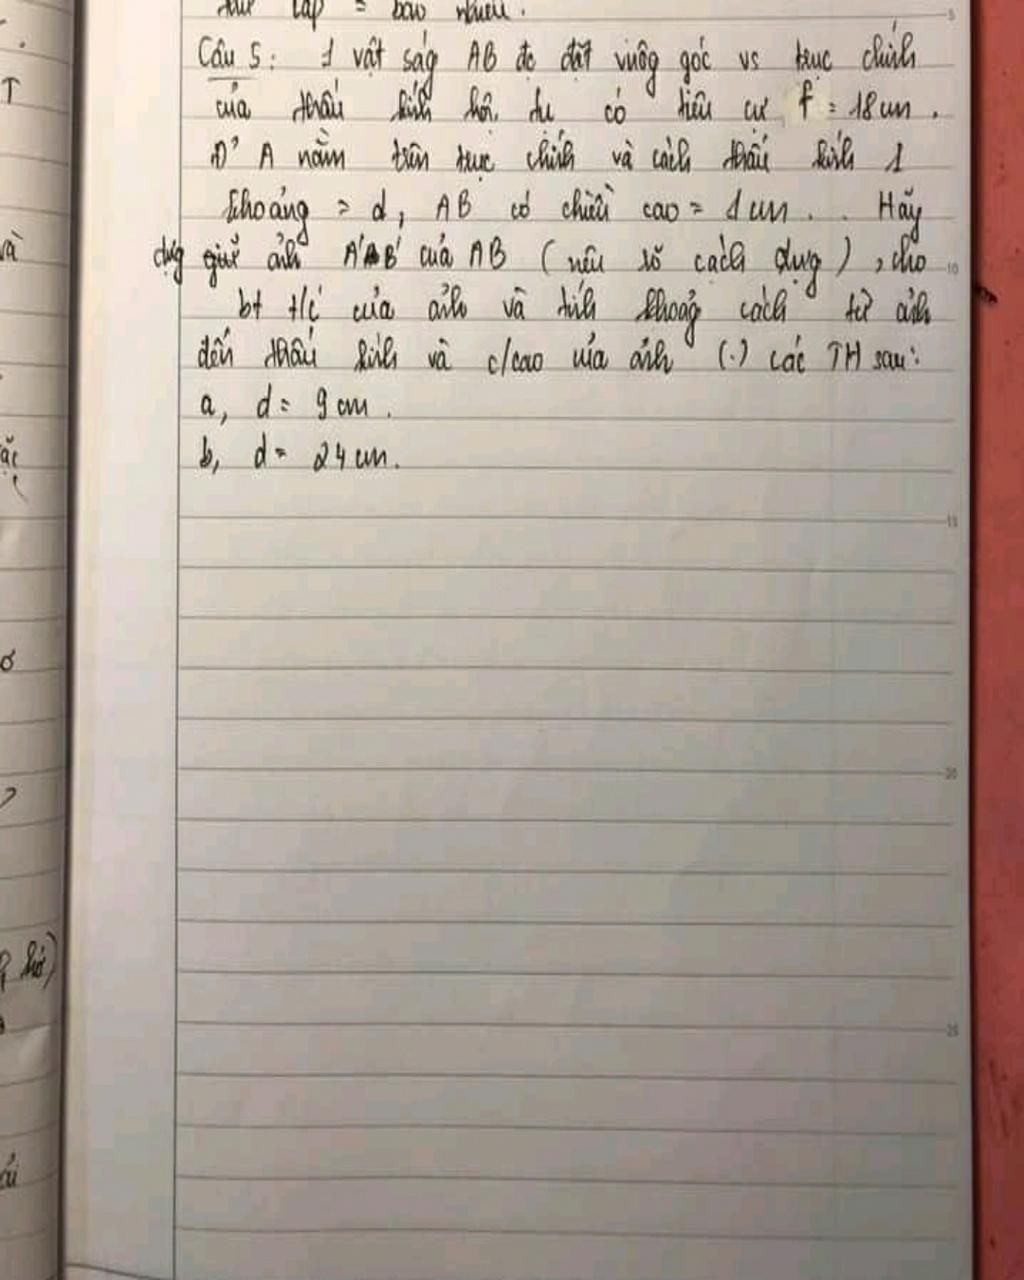 lập = bao nhiêu.
Câu 5: 1 vậtság AB đc đặt vuôg góc vs trục chính
của thấu kính hội tụ có tiêu cự f = 18 cm.
Đ' A nằm trên trục chính và cách thấu kính 1
khoảng = d, AB có chiều cao = 1 cm. Hãy
dựg ảnh A'B' của AB (nêu rõ cách dựg), cho
bt t/c của ảnh và tính khoảg cách từ ảnh
đến thấu kính và c/cao của ảnh (.) các TH sau:
a, d = 9 cm.
b, d = 24 cm.
T
và
ơ
?
hở)